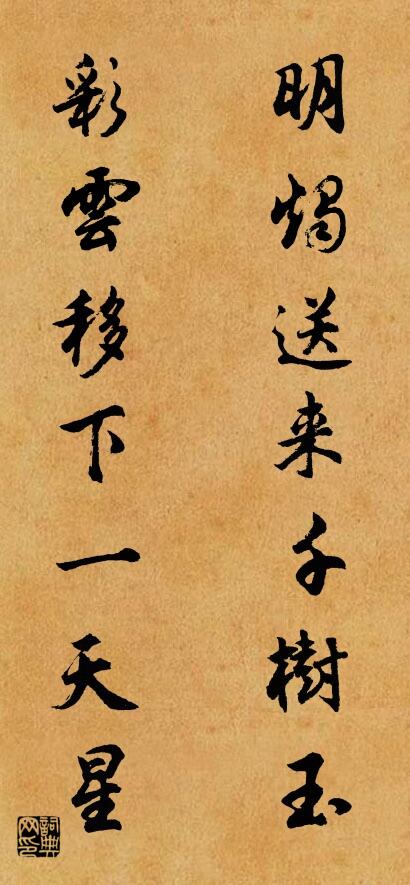 明燭送来千樹玉
彩雲移下一天星
詞典网印